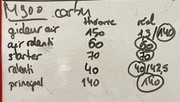 M900 carby
throrre réel
gideur air 150 1,3/140
air ralenti 60 60
starter 70 70
ralenti 40 40/42,5
principal 140 140